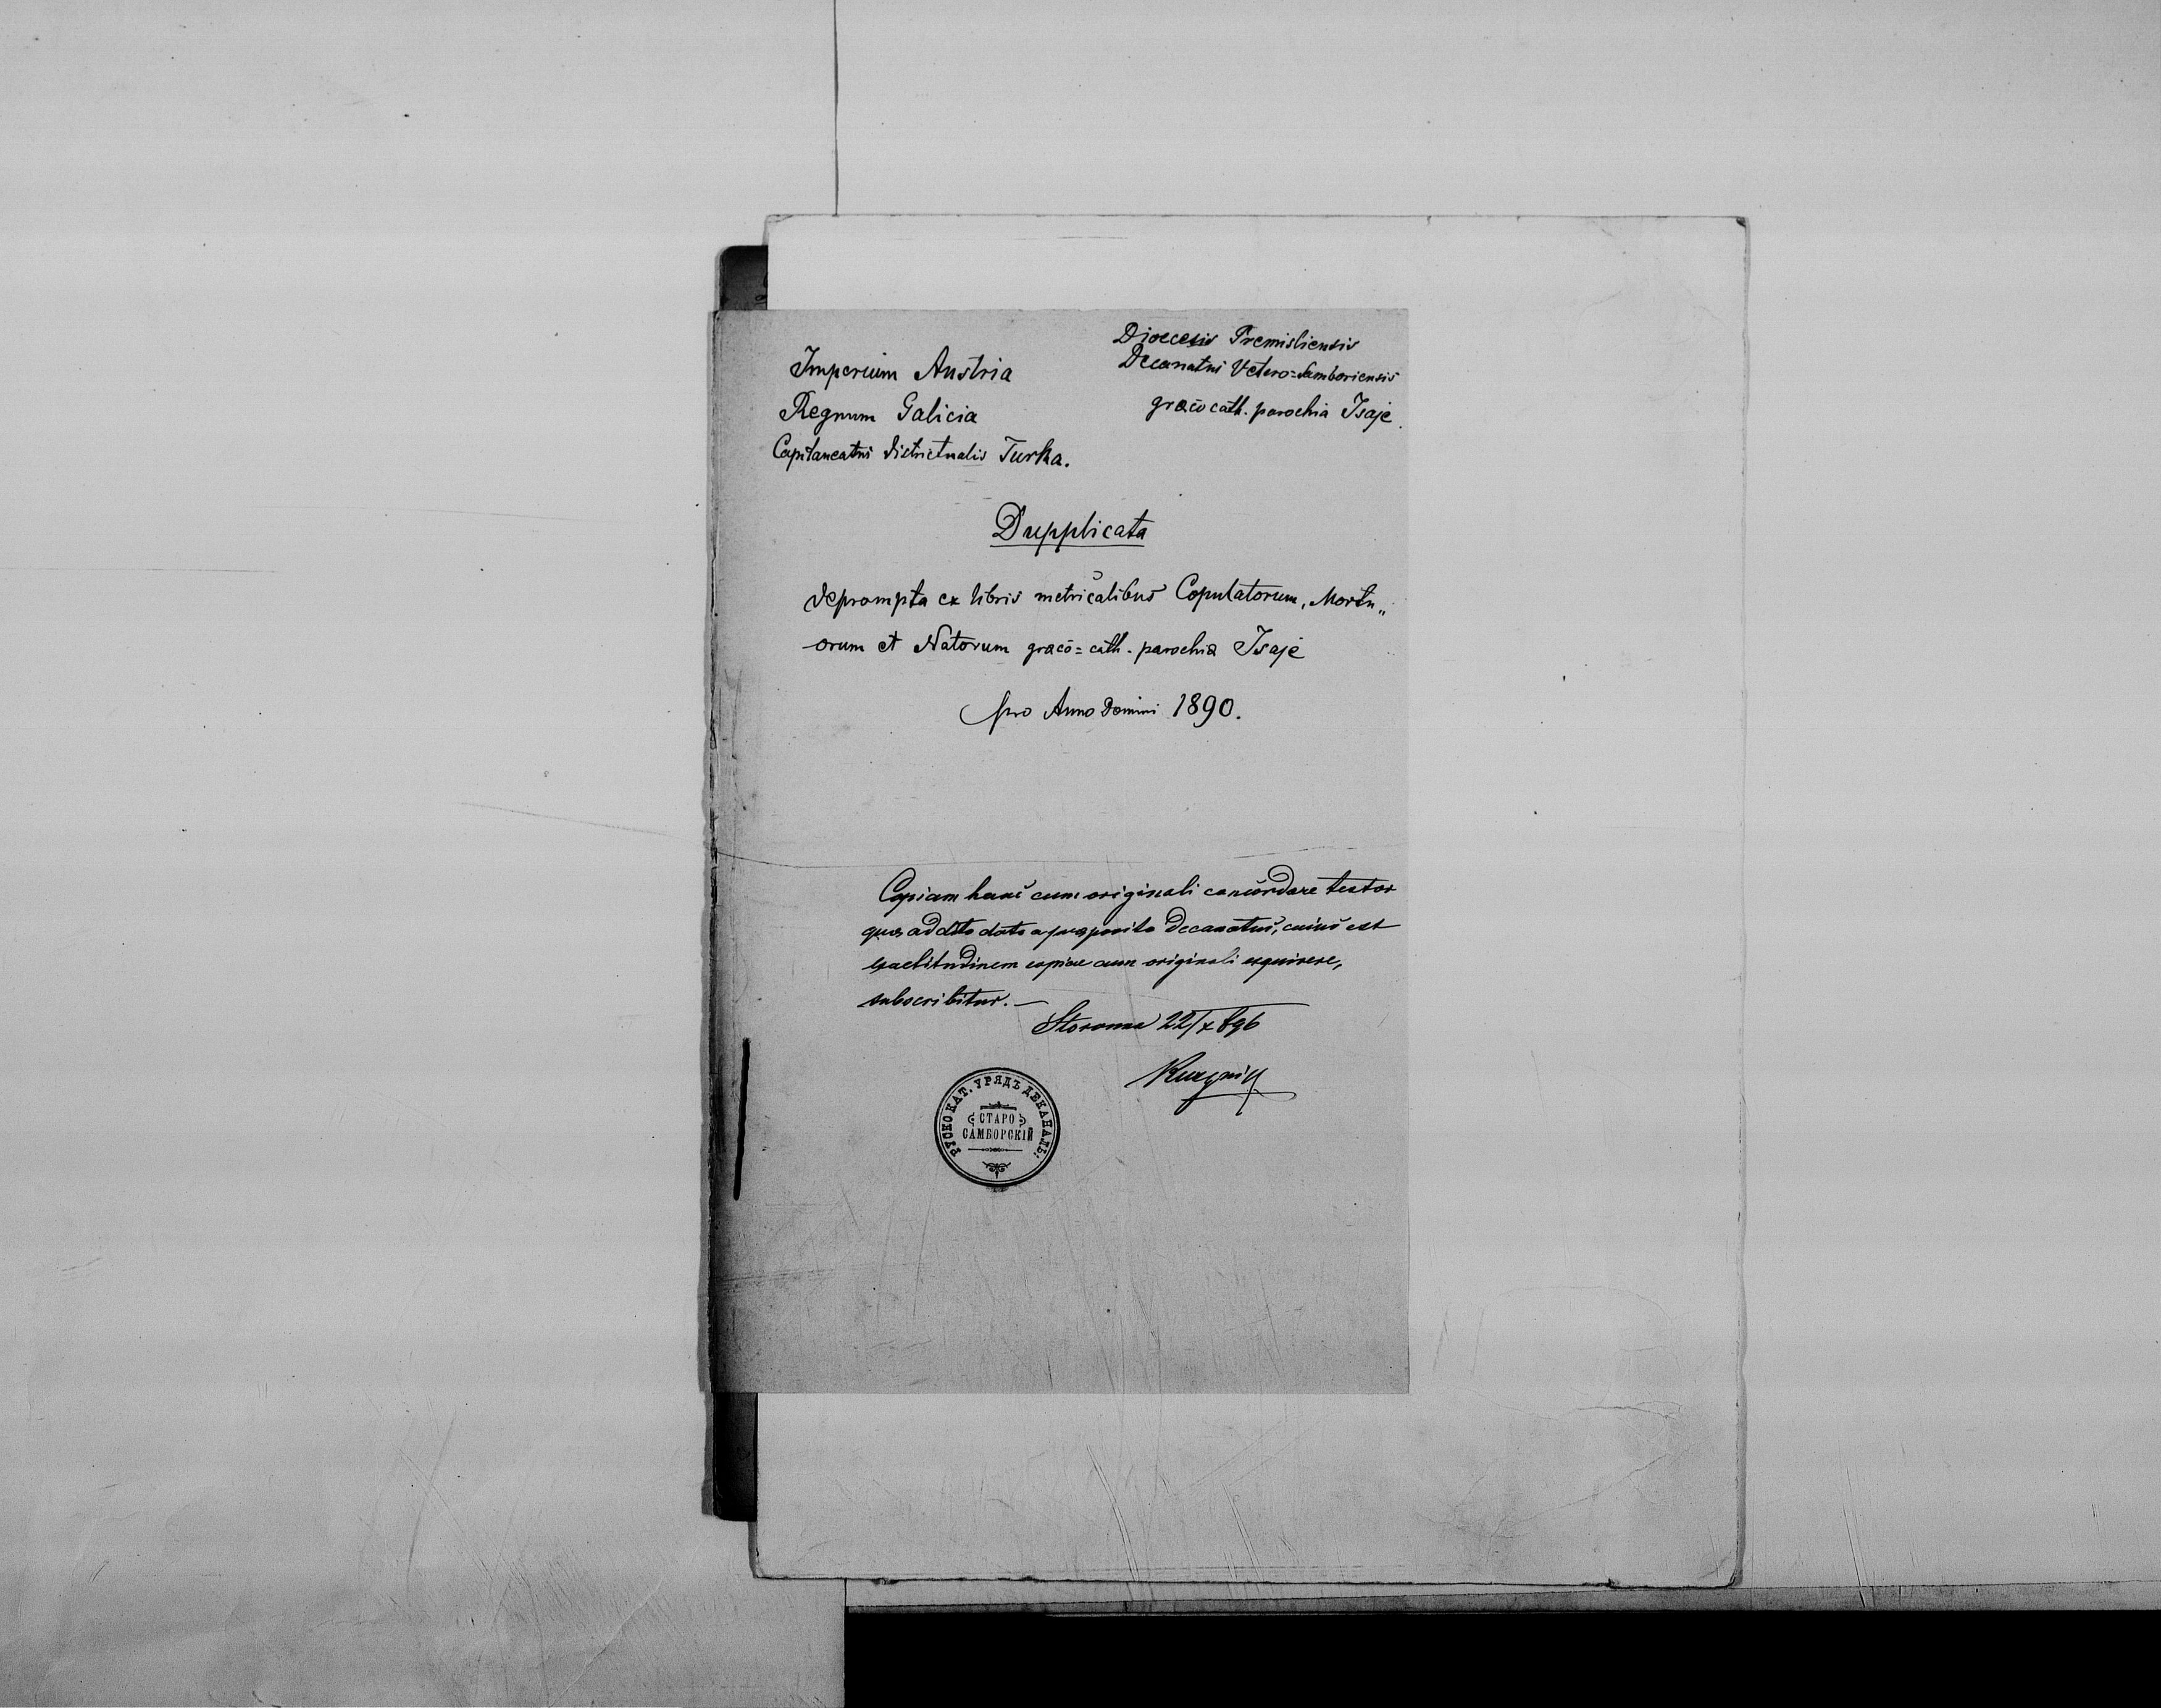 Imperium Austria
Regnum Galicia
Capitaneatus districtualis Turka.
Dioecesis Premisliensis
Decanatus Vetero=Samboriensis
graeco cath. parochia Isaje.
Dupplicata
deprompta ex libris metricalibus Copulatorum, Mortu„
orum et Natorum graeco=cath. parochia Isaje
pro Anno Domini 1890.
Copiam hanc cum originali concordare testor
addito dato a praeposito Decanatus, cuius est
exactitudinem copiae cum originali exquirere,
subscribitur.—
22/X 896
РУСКО КАТ. УРЯДЪ ДЕКАНАЛЬ:
СТАРО
САМБОРСКІЙ